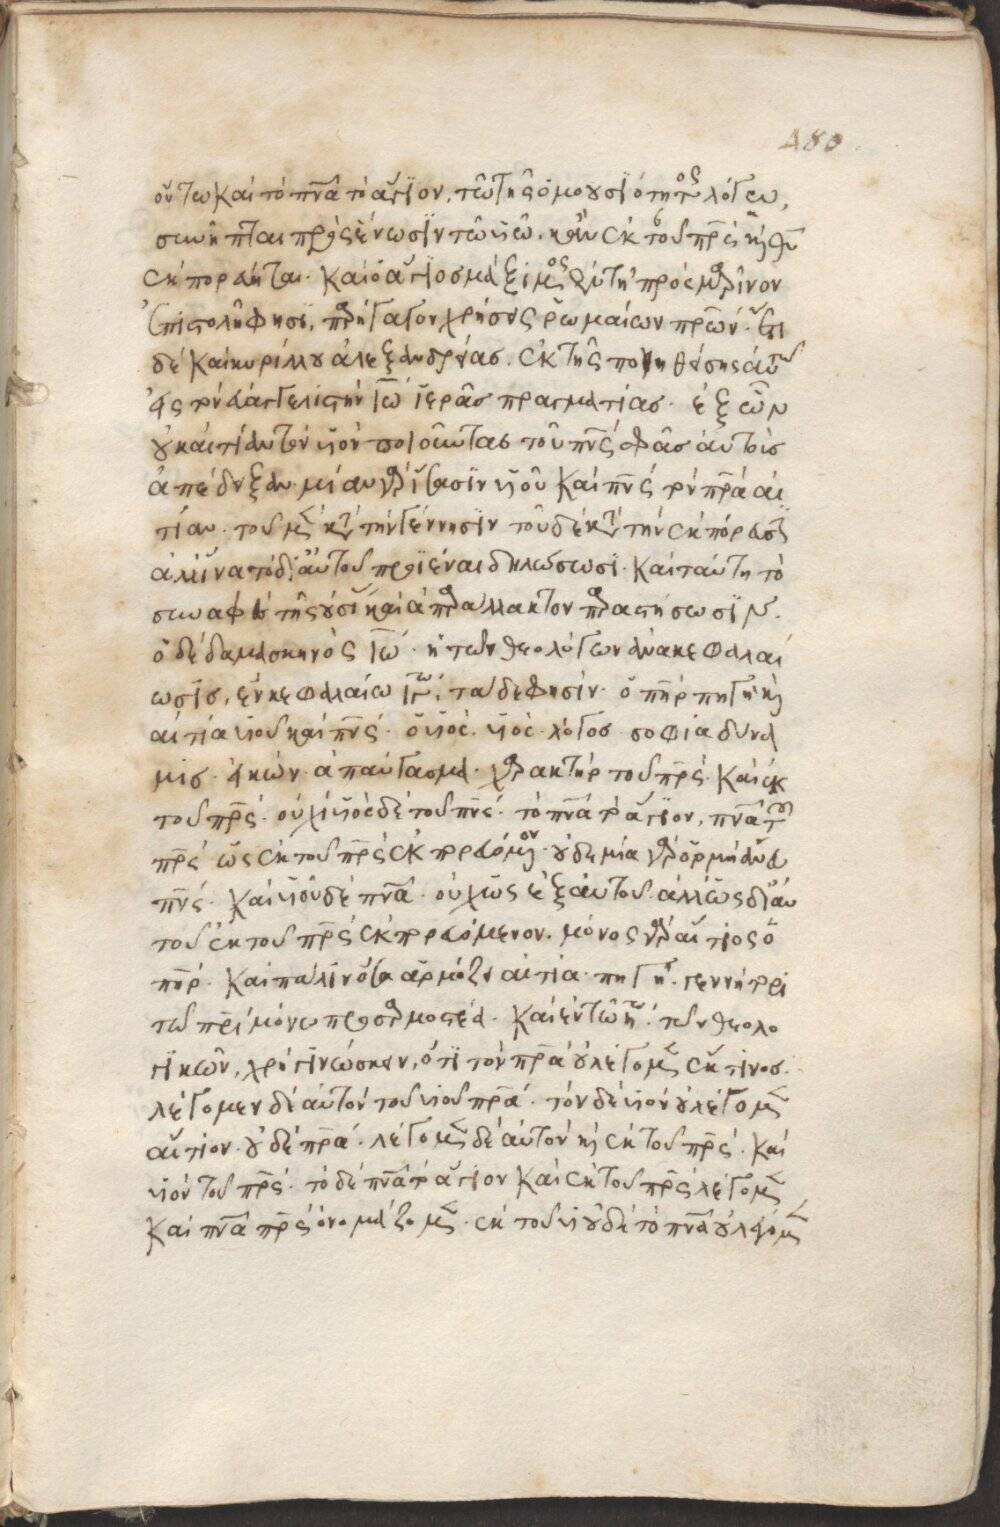 480
οὕτω καὶ τὸ πνᾶ τὸ ἅγϊον, τῶ τῆς ὁμοουσϊότητος λόγω,
συνῆπται πρὸς ἕνωσϊν τῶ υἱῶ. κἂν ἐκ τοῦ πρς κὶ θυ
ἐκπορεύηται. καὶ ὁ ἅγϊος μάξιμος ἐν τῆ πρὸς μαρῖνον
ἐπιστολῆ φησϊ, παρήγαγον χρήσεις ῥωμαίων πρων. ἔτι
δὲ καὶ κυρίλλου ἀλεξανδρείας. ἐκ τῆς πονηθείσης αὐτῶ
εἰς τὸν εὐαγγελιστὴν ιω ἱερᾶς πραγματίας. ἐξ ὧν
οὐκ αἰτίαν τὸν υἱὸν ποιοῦντας τοῦ πνς σφᾶς αὐτοὺς
ἀπέδειξαν. μίαν γὰρ ἴσασϊν υἱοῦ καὶ πνς τὸν πρα αἰ
τίαν. τοῦ μὲν κατὰ τὴν γέννησϊν τοῦ δὲ κατὰ τὴν ἐκπόρευσϊν
ἀλλ' ἵνα τὸ δι' αὐτοῦ προϊέναι δηλώσωσϊ. καὶ ταύτη τὸ
συναφὲς τῆς οὐσίας καὶ ἀπαράλλακτον παραστήσωσϊν.
ὁ δὲ δαμασκηνὸς ιω. ἡ τῶν θεολόγων ἀνακεφαλαί
ωσϊς, ἐν κεφαλαίω, τάδε φησίν. ὁ πηρ πηγὴ κὶ
αἰτία υἱοῦ καὶ πνς. ὁ υἱὸς. υἱὸς. λόγος. σοφία δύνα
μις. εἰκών. ἀπαύγασμα. χαρακτὴρ τοῦ πρς. καὶ ἐκ
τοῦ πρς. οὐχ υἱὸς δὲ τοῦ πνς. τὸ πνα τὸ ἅγιον, πνα τοῦ
πρς ὡς ἐκ τοῦ πρς ἐκπορευόμενον. οὐδεμία γὰρ ὁρμὴ ἄνευ
πνς. καὶ υἱοῦ δὲ πνα. οὐχ ὡς ἐξ αὐτοῦ. ἀλλ' ὡς δι' αὐ
τοῦ ἐκ τοῦ πρς ἐκπορευόμενον. μόνος γὰρ αἴτιος ὁ
πηρ. καὶ πάλιν ἁρμόζει αἰτία. πηγὴ. γεννήτρι
τῶ πρι μόνω προσαρμοστέα. καὶ ἐν τῶ. τῶν θεολο
γϊκῶν, χρὴ γϊνώσκειν, ὅτϊ τὸν πρα οὐ λέγομεν ἔκ τϊνος.
λέγομεν δὲ αὐτὸν τοῦ υἱοῦ πρα. τὸν δὲ υἱὸν οὐ λέγομεν
αἴτιον. οὐδὲ πρα. λέγομεν δὲ αὐτὸν κὶ ἐκ τοῦ πρς. καὶ
υἱὸν τοῦ πρς. τὸ δὲ πνα τὸ ἅγιον καὶ ἐκ τοῦ πρς λέγομεν
καὶ πνα πρς ὀνομάζομεν. ἐκ τοῦ υἱοῦ δὲ τὸ πνα οὐ λέγομεν